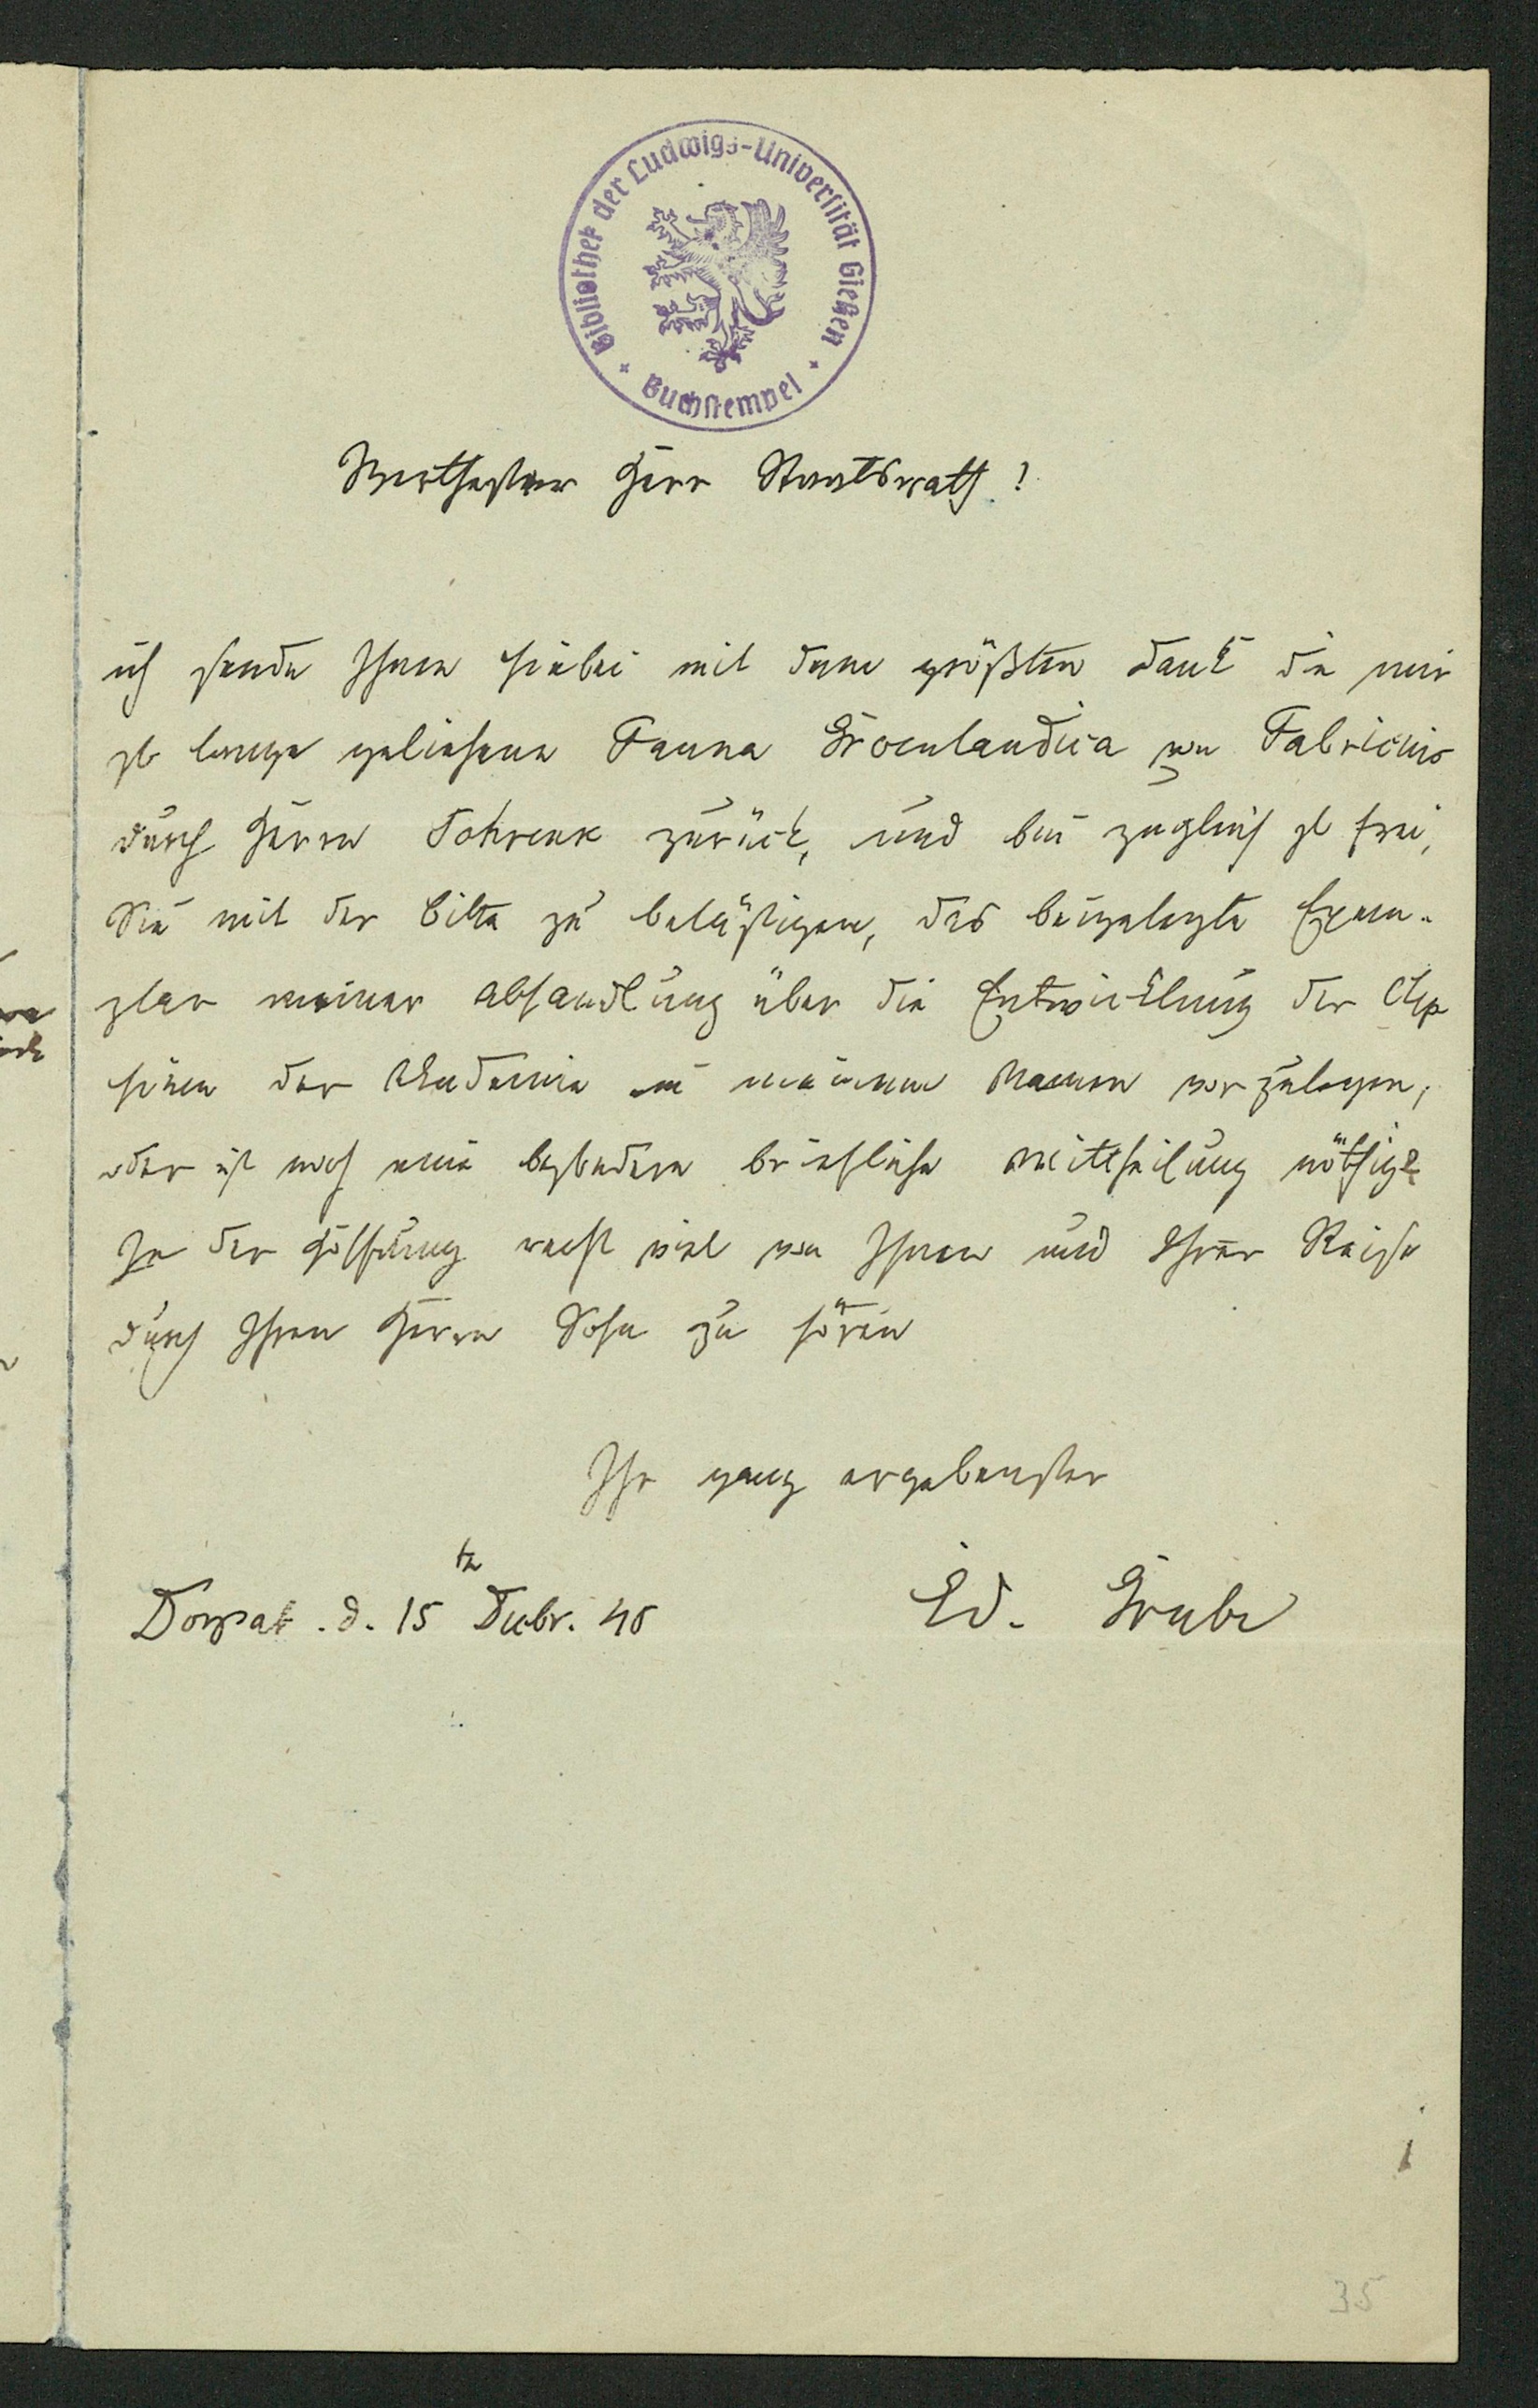 Bibliothek der Ludwigs-Universität Gießen
Buchstempel
Werthester Herr Staatsrath!
ich sende Ihnen hiebei mit dem größten Dank die mir
so lange geliehene Fauna Groenlandica von Fabricius
durch Herrn Schrenk zurück, und bin zugleich so frei,
Sie mit der Bitte zu belästigen, das beigelegte Exem-
plar meiner Abhandlung über die Entwicklung der Clep
sinen der Akademie in meinem Namen vorzulegen,
oder ist noch eine besondere briefliche Mittheilung nöthig?
In der Hoffnung recht viel von Ihnen und Ihrer Reise
durch Ihren Herrn Sohn zu hören
Ihr ganz ergebenster
Ed. Grube
Dorpat. d. 15 tn Decbr. 45
35